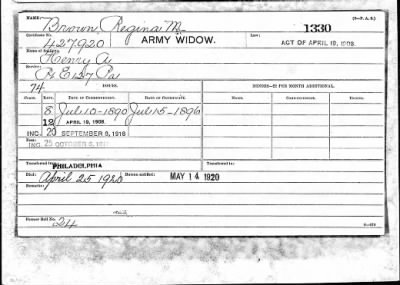 NAME: Brown, Regina M. (3—P. A. G.)
Certificate No. 427920 ARMY WIDOW. Law: 1330
ACT OF APRIL 19, 1908.
Name of Soldier: Henry A.
Service: 
74 ISSUE. MINORS—$2 PER MONTH ADDITIONAL.
CLASS. RATE. DATE OF COMMENCEMENT. DATE OF CERTIFICATE.
8 Jul. 10-1890 Jul. 15-1896
12 APRIL 19, 1908.
INC. 20 SEPTEMBER 8, 1916
INC. 25 OCTOBER 6, 1917
Transferred from PHILADELPHIA Transferred to
Died: April 25 1920 Dropped entitled: MAY 14 1920
Remarks:
Former Roll No. 24